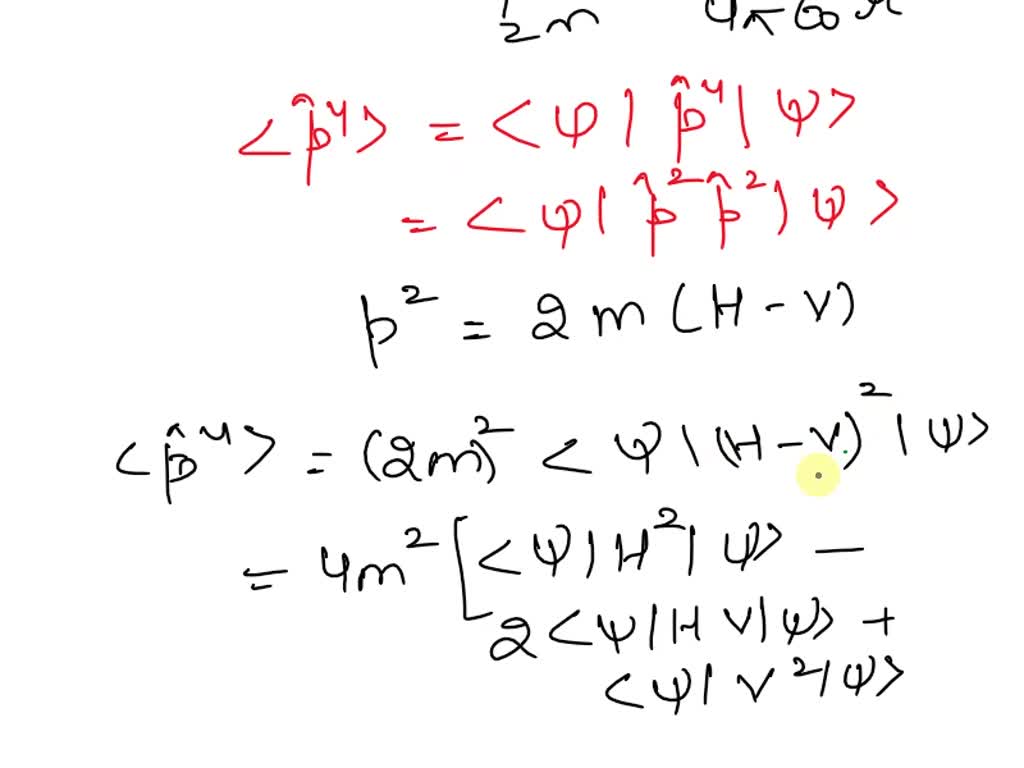 2m 4πε0r
<p̂⁴> = <ψ|p̂⁴|ψ>
= <ψ|p̂²p̂²|ψ>
p² = 2m(H-V)
<p̂⁴> = (2m)² <ψ|(H-V)²|ψ>
= 4m² [<ψ|H²|ψ> -
2<ψ|HV|ψ> +
<ψ|V²|ψ>